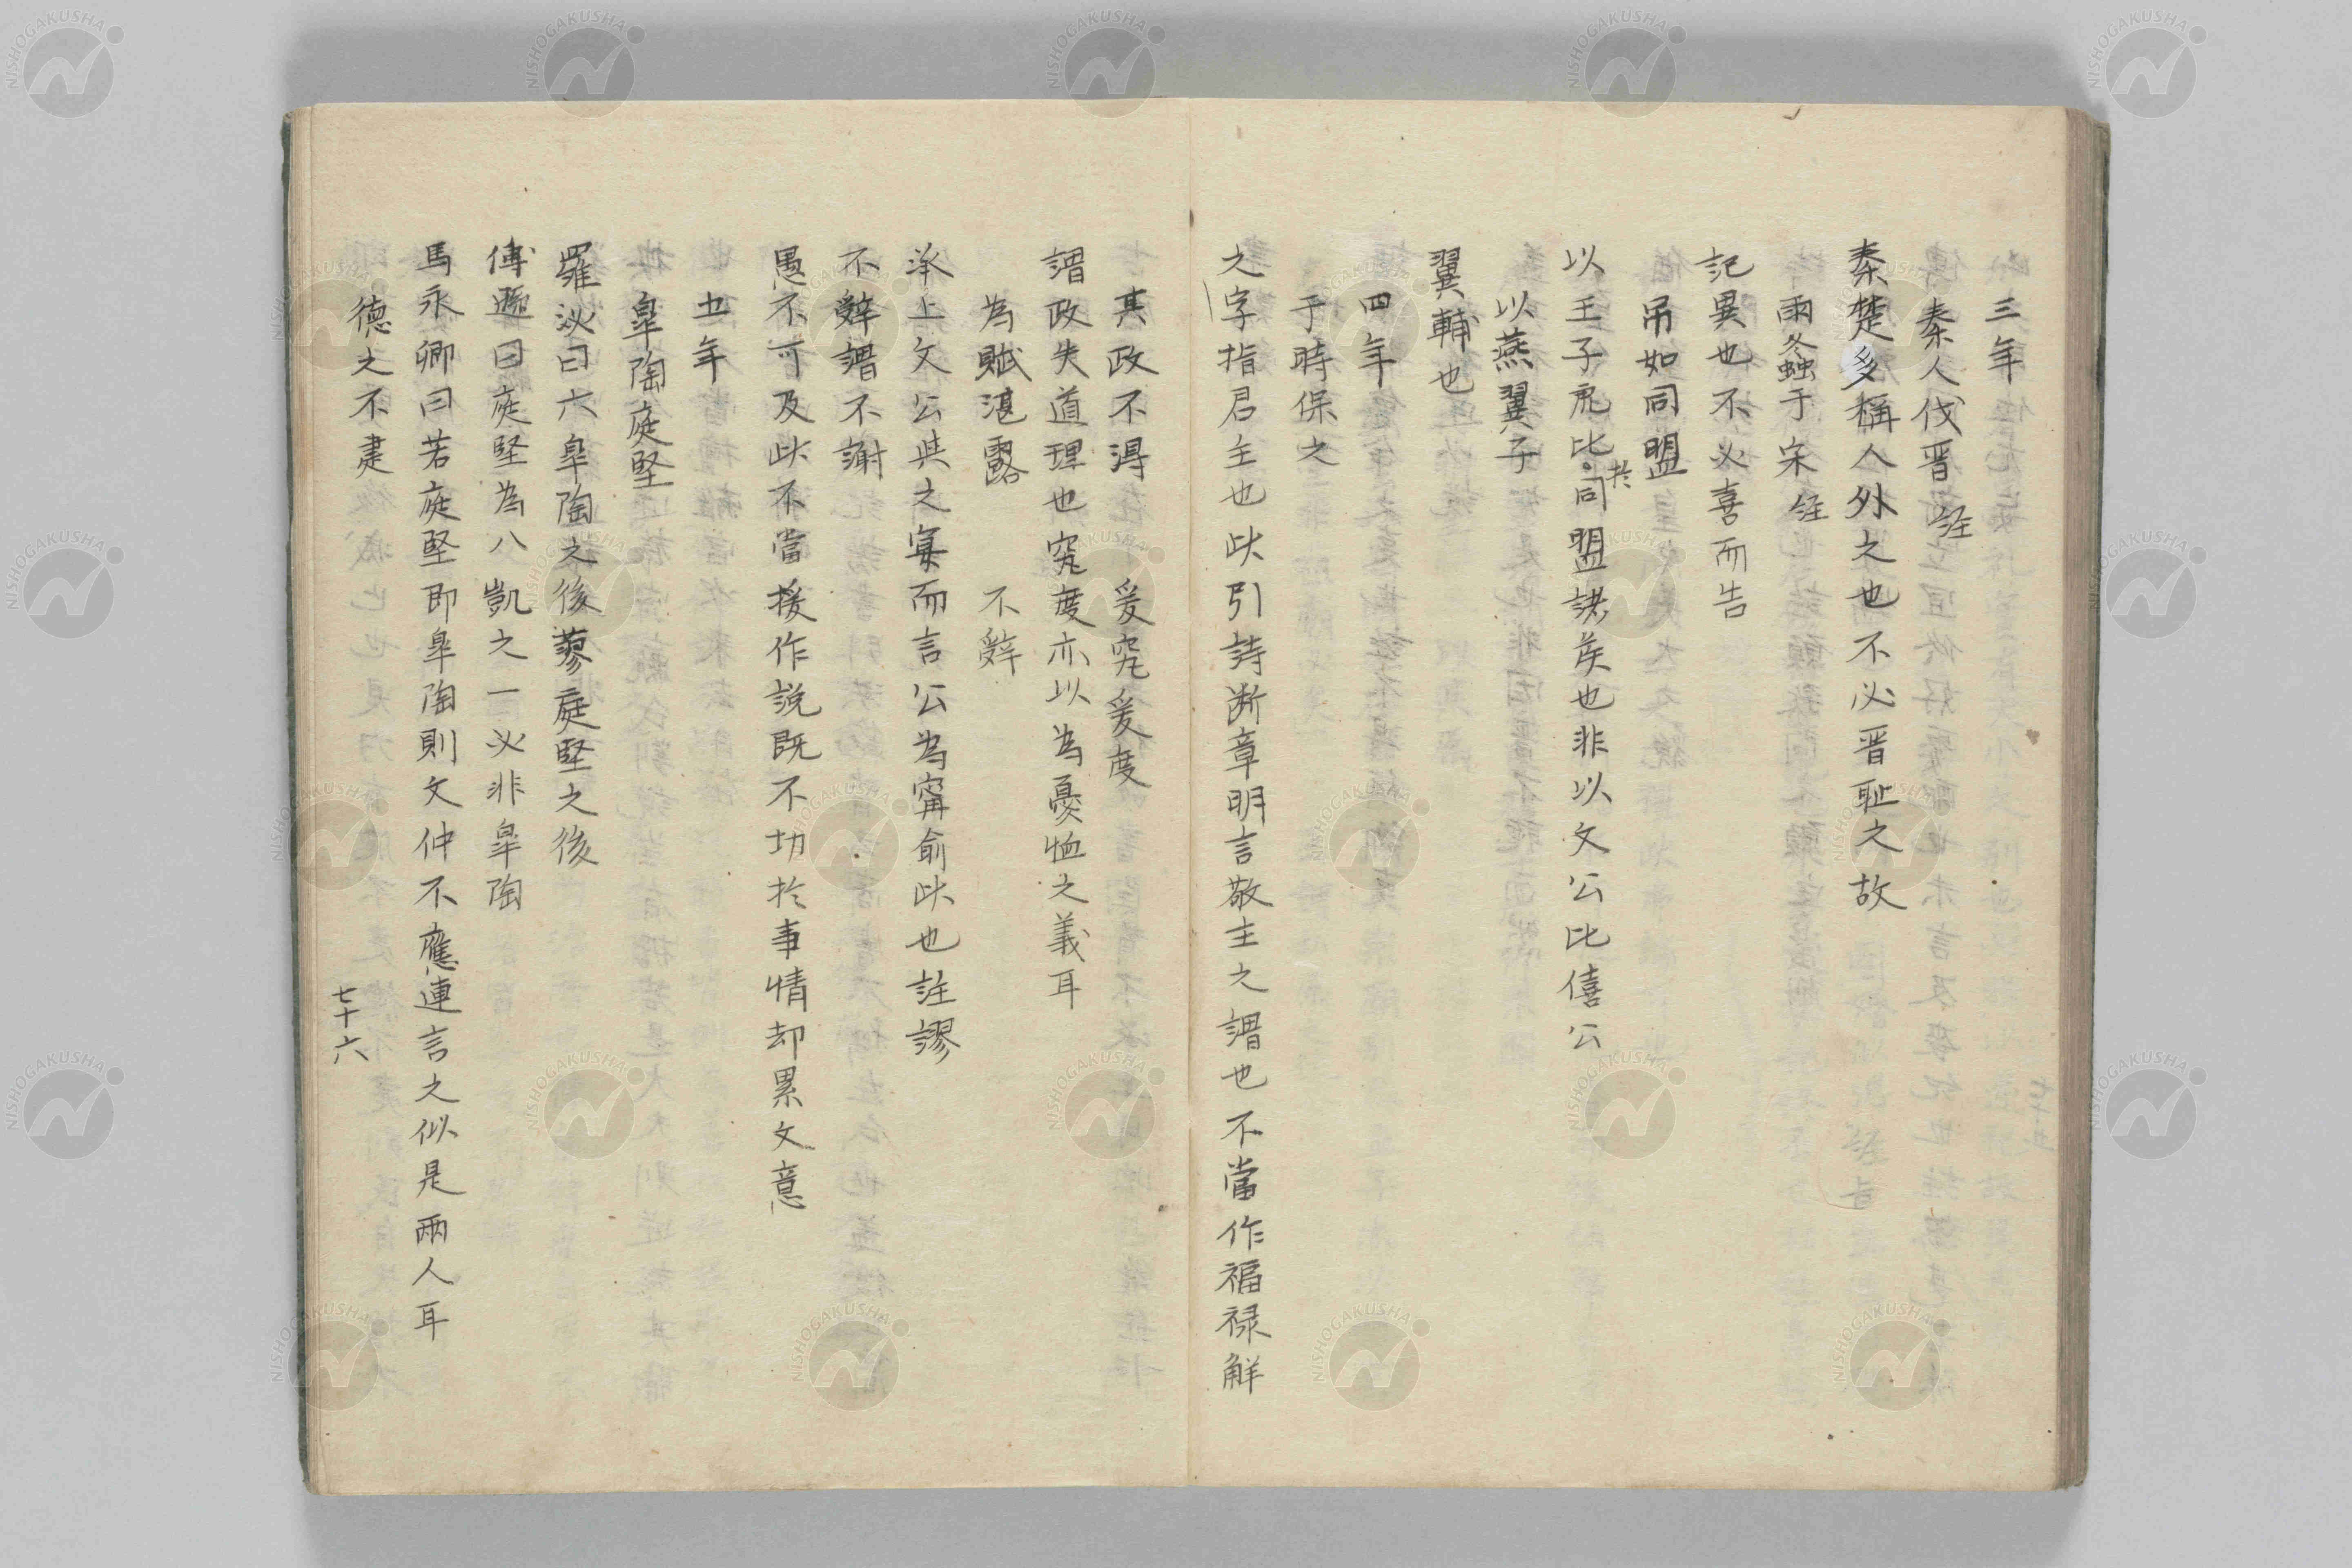 三年
秦人伐晋 註
秦楚多稱人外之也不必晋耻之故
雨螽于宋 註
記異也不必喜而告
吊如同盟
以王子虎比於同盟諸侯也非以文公比僖公
以燕翼子
翼輔也
四年
于時保之
之字指君主也此引詩断章明言敬主之謂也不當作福禄解
其政不得 爰究爰度
謂政失道理也究度亦以為憂恤之義耳
為賦湛露 不辭
承上文公與之宴而言公為甯俞此也註謬
不辭謂不謝
愚不可及此不當援作説既不切於事情却累文意
五年
皐陶庭堅
羅泌曰六皐陶之後蓼庭堅之後
傅遜曰庭堅為八凱之一必非皐陶
馬永卿曰若庭堅即皐陶則文仲不應連言之似是兩人耳
德之不建
七十六
NISHOGAKUSHA